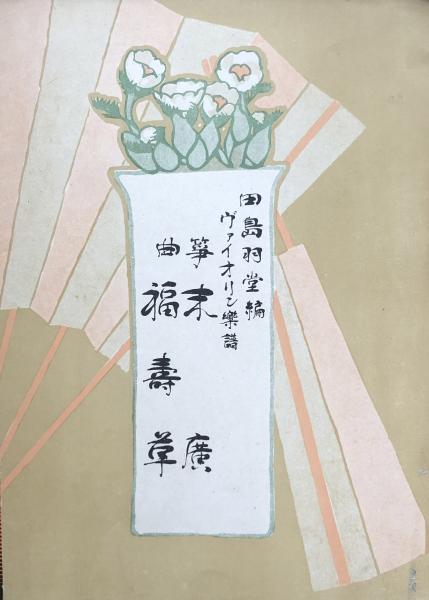 田島羽堂編
ヴァイオリン樂譜
箏曲
末廣
福壽草